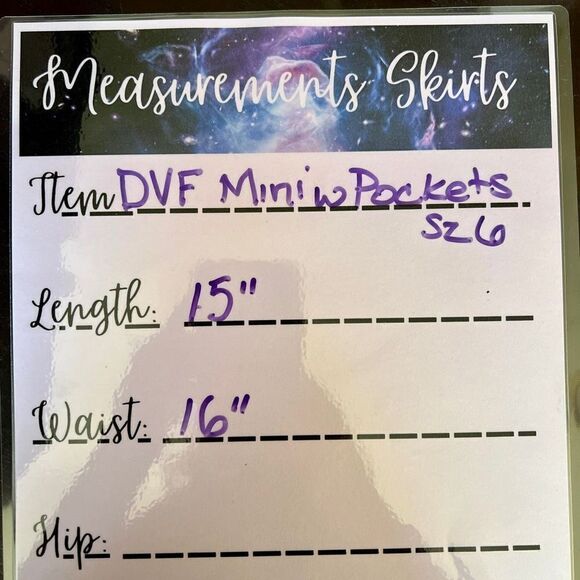 Measurements Skirts
Item DVF Mini w Pockets
Sz 6
Length: 15"
Waist: 16"
Hip: